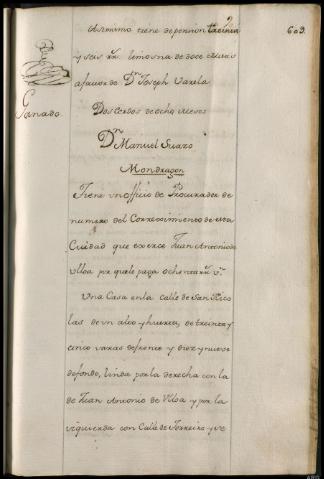 609.
Asimismo tiene de pension treinta
y seis rr.^s limosna de doce misas
a favor de D.^n Joseph Varela
Ganado
Dos Cerdos de ocho meses
D.^n Manuel Suarz
Mondragon
Tiene un officio de Procurador de
numero del Correximiento de esta
Ciudad que exerce Juan Antonio de
Ulloa por que le paga ochenta rr.^s v.^n
Una Casa en la Calle de San Nico
las de un alto y huerta, de treinta y
cinco varas de frente y diez y nueve
de fondo, linda por la derecha con la
de Juan Antonio de Ulloa y por la
izquierda con Calle de Ferreira y